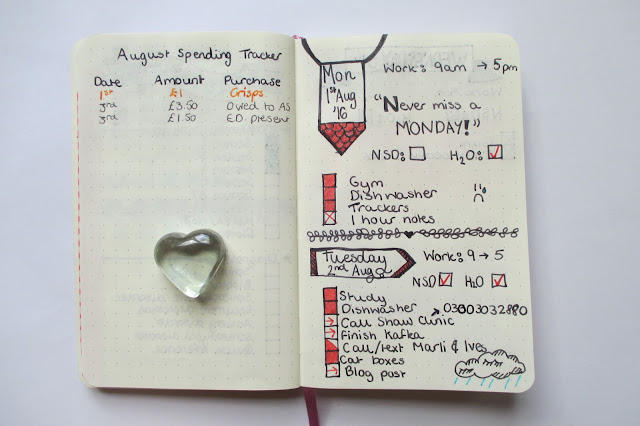 August Spending Tracker
Date Amount Purchase
1st £1 Crisps
3rd £3.50 Owed to AS
3rd £1.50 ED present
Mon
1st Aug
'16
Work: 9am → 5pm
"Never miss a
MONDAY!"
NSD: H2O:
Gym
Dishwasher
Trackers
1 hour notes
Tuesday
2nd Aug
Work: 9 → 5
NSD H2O
Study
Dishwasher 03003032880
Call Shaw Clinic
Finish Kafka
Call/text Marli & Ives
Cat boxes
Blog post